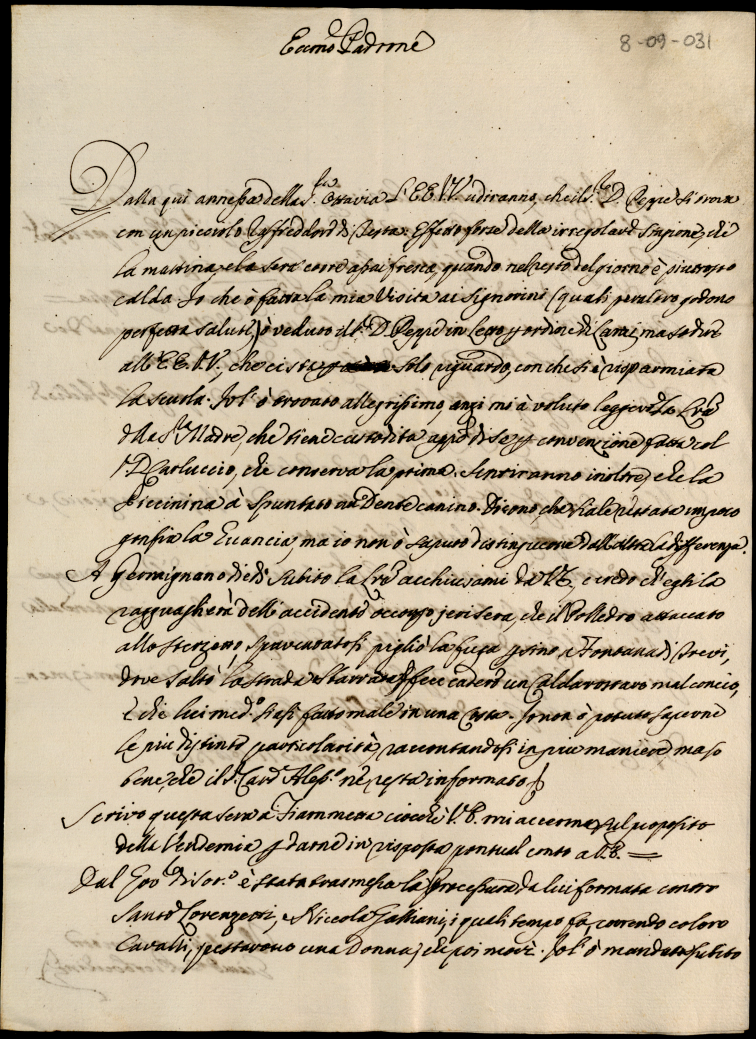 Eccmo Padrone
8-09-031
Dalla quì annessa della Sra Ottavia l'EE.VV. udiranno, che il Sr. D. Peppe si trova
con un piccolo raffreddore di testa. Effetto forse della irregolare stagione, che
la mattina, e la sera corre assai fresca, quando nel resto del giorno è piuttosto
calda. Io che ò fatta la mia visita ai Signorini (quali per altro godono
perfetta salute) ò veduto il Sr. D. Peppe in letto p ordine di Carai, ma so dire
all'EE.VV., che ci sta p solo riguardo, con che si è risparmiata
la scuola. Io l'ò trovato allegrissimo, anzi mi à voluto leggere la Lrã
della Sra Madre, che tiene custodita appõ di se p convenzione fatta col
Sr. D. Carluccio, che conserva la prima. Sentiranno inoltre, che la
Piccinina à spuntato un Dente canino. Dicono, che siale restata un poco
gonfia la Guancia, ma io non ò saputo distinguerne dall'altra la differenza.
A Germignano diedi subito la Lrã acchiusami da V.E., e credo ch'egli la
ragguaglierà dell'accidente occorso jeri sera, che il Polledro attaccato
allo sterzetto, spaventatosi pigliò la fuga p sino a Fontana di Trevi,
dove saltò la strada e fece cadere un Caldarrostaro mal concio,
e che lui medo siasi fatto male in una Costa. Io non ò potuto saperne
le più distinte particolarità, raccontandosi in più maniere, ma so
bene, che il Sr. Card. Aless.o nè resta informato.
Scrivo questa sera a Fiammetta ciocchè V.E. mi accenna sul proposito
della Vendemia p darne in risposta pontual conto a V.E. =
Dal Govre di Sor.o è stata trasmessa la Processura da lui formata contro
Sante Lorenzetti, e Niccola Galliani, i quali tempo fa, correndo coi loro
Cavalli, pestarono una Donna, che poi morì. Io l'ò mandata subito